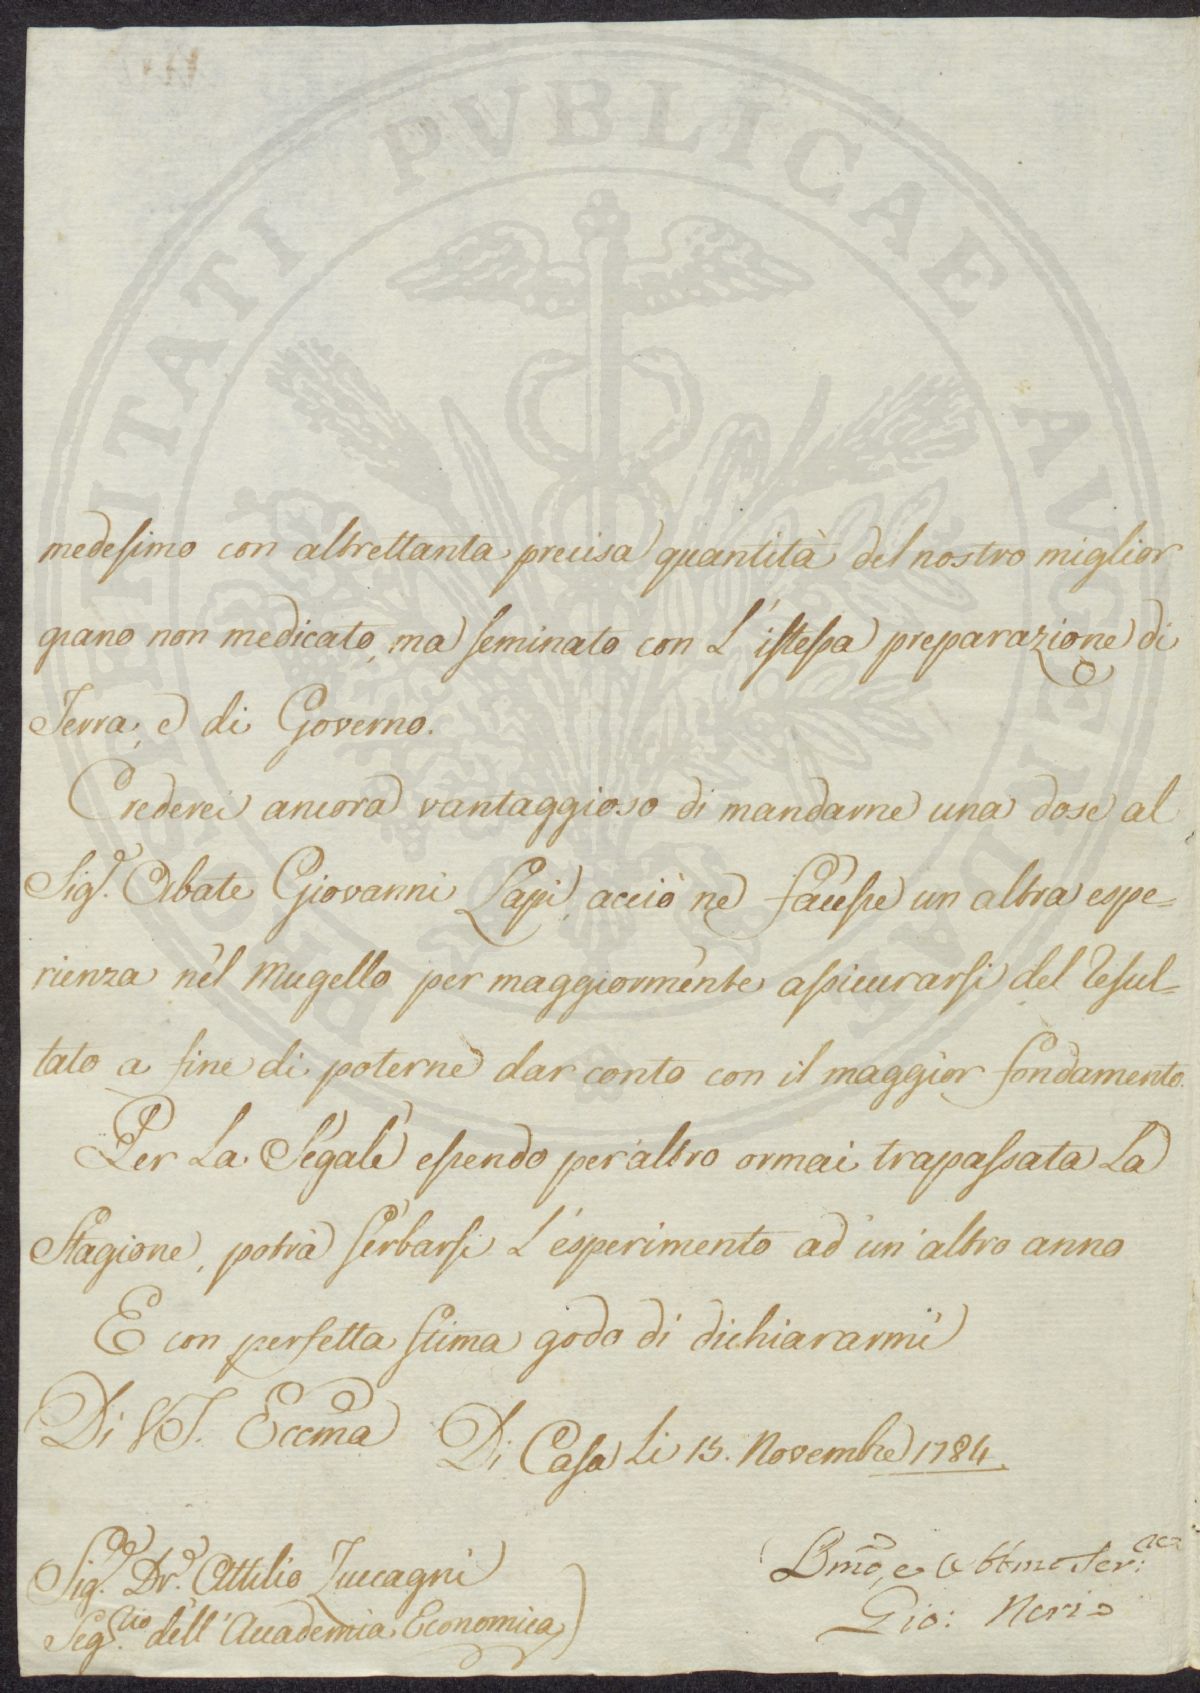 PROSPERITATI PVBLICAE AVGENDAE
medesimo con altrettanta precisa quantità del nostro miglior
grano non medicato, ma seminato con L'istessa preparazione di
Terra, e di Governo.
Crederei ancora vantaggioso di mandarne una dose al
Sig.e Abate Giovanni Lapi, acciò ne facesse un altra espe=
rienza nel Mugello per maggiormente assicurarsi del Resul=
tato a fine di poterne dar conto con il maggior fondamento.
Per La Segale essendo per altro ormai trapassata La
Stagione, potrà serbarsi L'esperimento ad un'altro anno
E con perfetta stima godo di dichiararmi
Di VS. Eccma
Di Casa Li 15. Novembre 1784.
Sig.e Dr.e Attilio Zuccagni
Seg.rio dell'Accademia Economica
Dmo, e Obbmo Ser.re
Gio: Neri